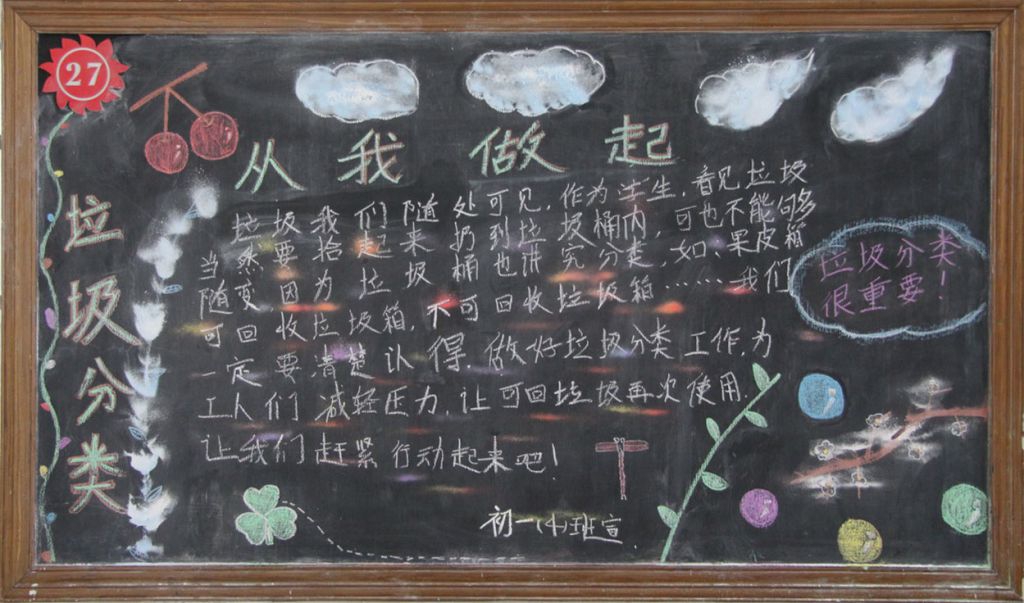 27
从我做起
垃圾分类
垃圾我们随处可见,作为学生,看见垃圾
当然要拾起来扔到垃圾桶内,可也不能够
随变,因为垃圾桶也讲究分类,如:果皮箱
可回收垃圾箱,不可回收垃圾箱……我们
一定要清楚认得,做好垃圾分类工作,为
工人们减轻压力,让可回垃圾再次使用.
让我们赶紧行动起来吧!
初一(4)班宣
垃圾分类
很重要!